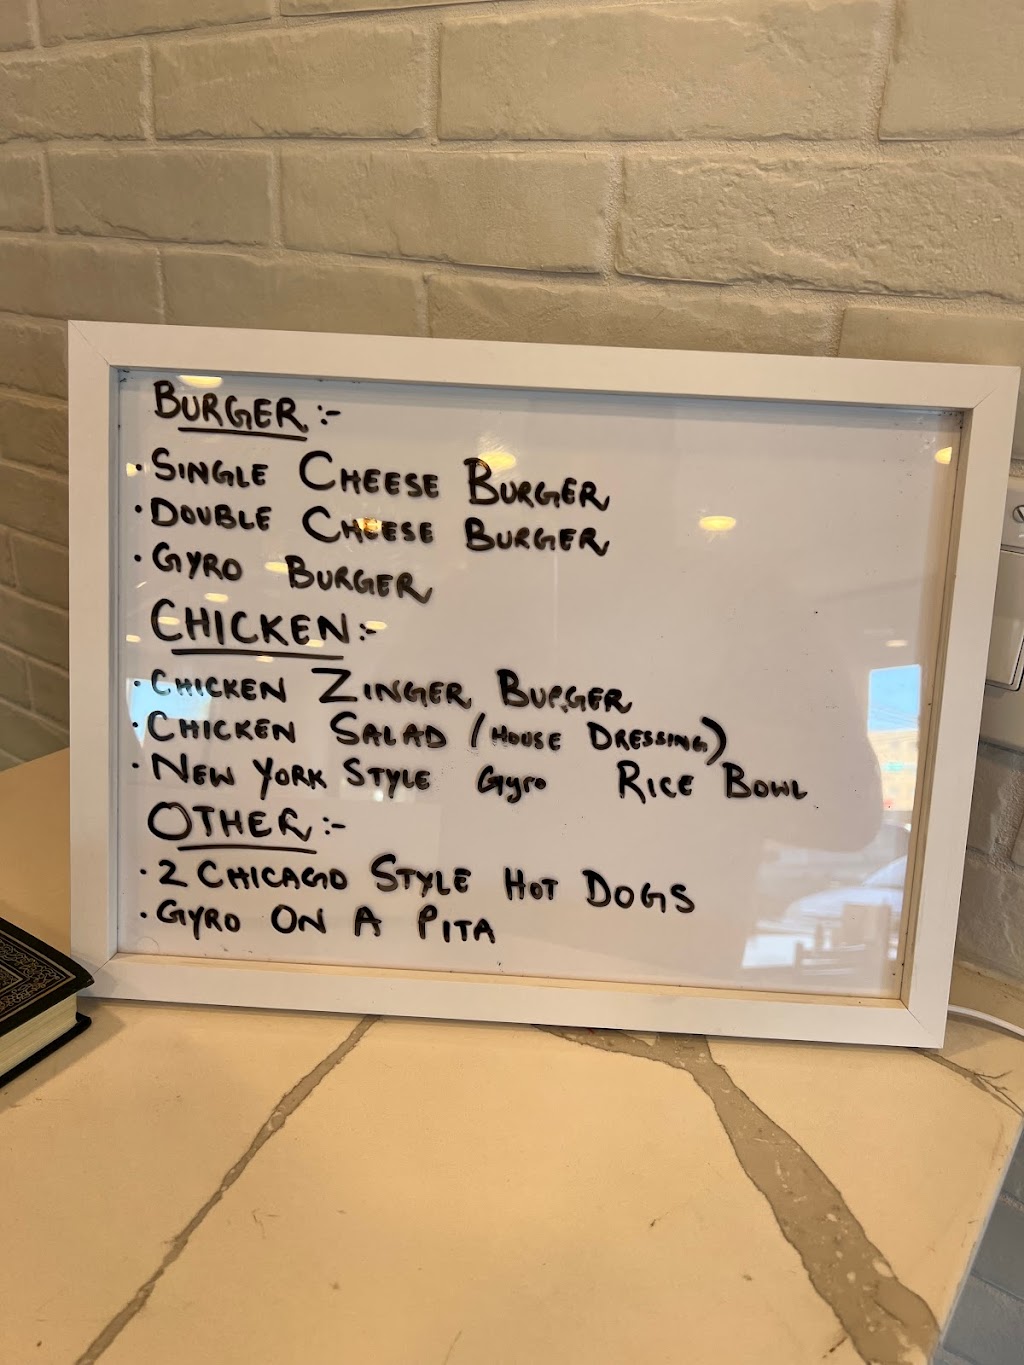 BURGER:-
· SINGLE CHEESE BURGER
· DOUBLE CHEESE BURGER
· GYRO BURGER
CHICKEN:-
· CHICKEN ZINGER BURGER
· CHICKEN SALAD (HOUSE DRESSING)
· NEW YORK STYLE Gyro RICE BOWL
OTHER:-
· 2 CHICAGO STYLE HOT DOGS
· GYRO ON A PITA